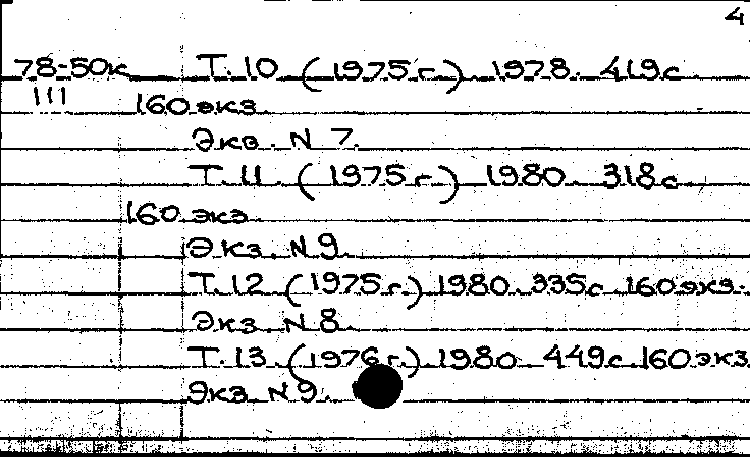 4
78-50к Т.10 (1975г.) 1978. 419с.
III 160 экз.
Экз. N 7.
Т.11. (1975г.) 1980. 318с.
160 экз.
Экз. N 9.
Т.12 (1975г.) 1980. 335с. 160 экз.
Экз. N 8.
Т.13. (1976г.) 1980. 449с. 160 экз
Экз. N 9.